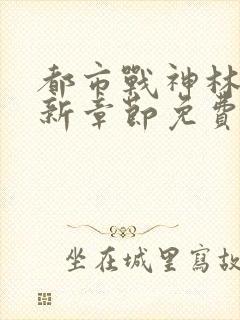 都市戰神林
新章節免費
坐在城里寫故